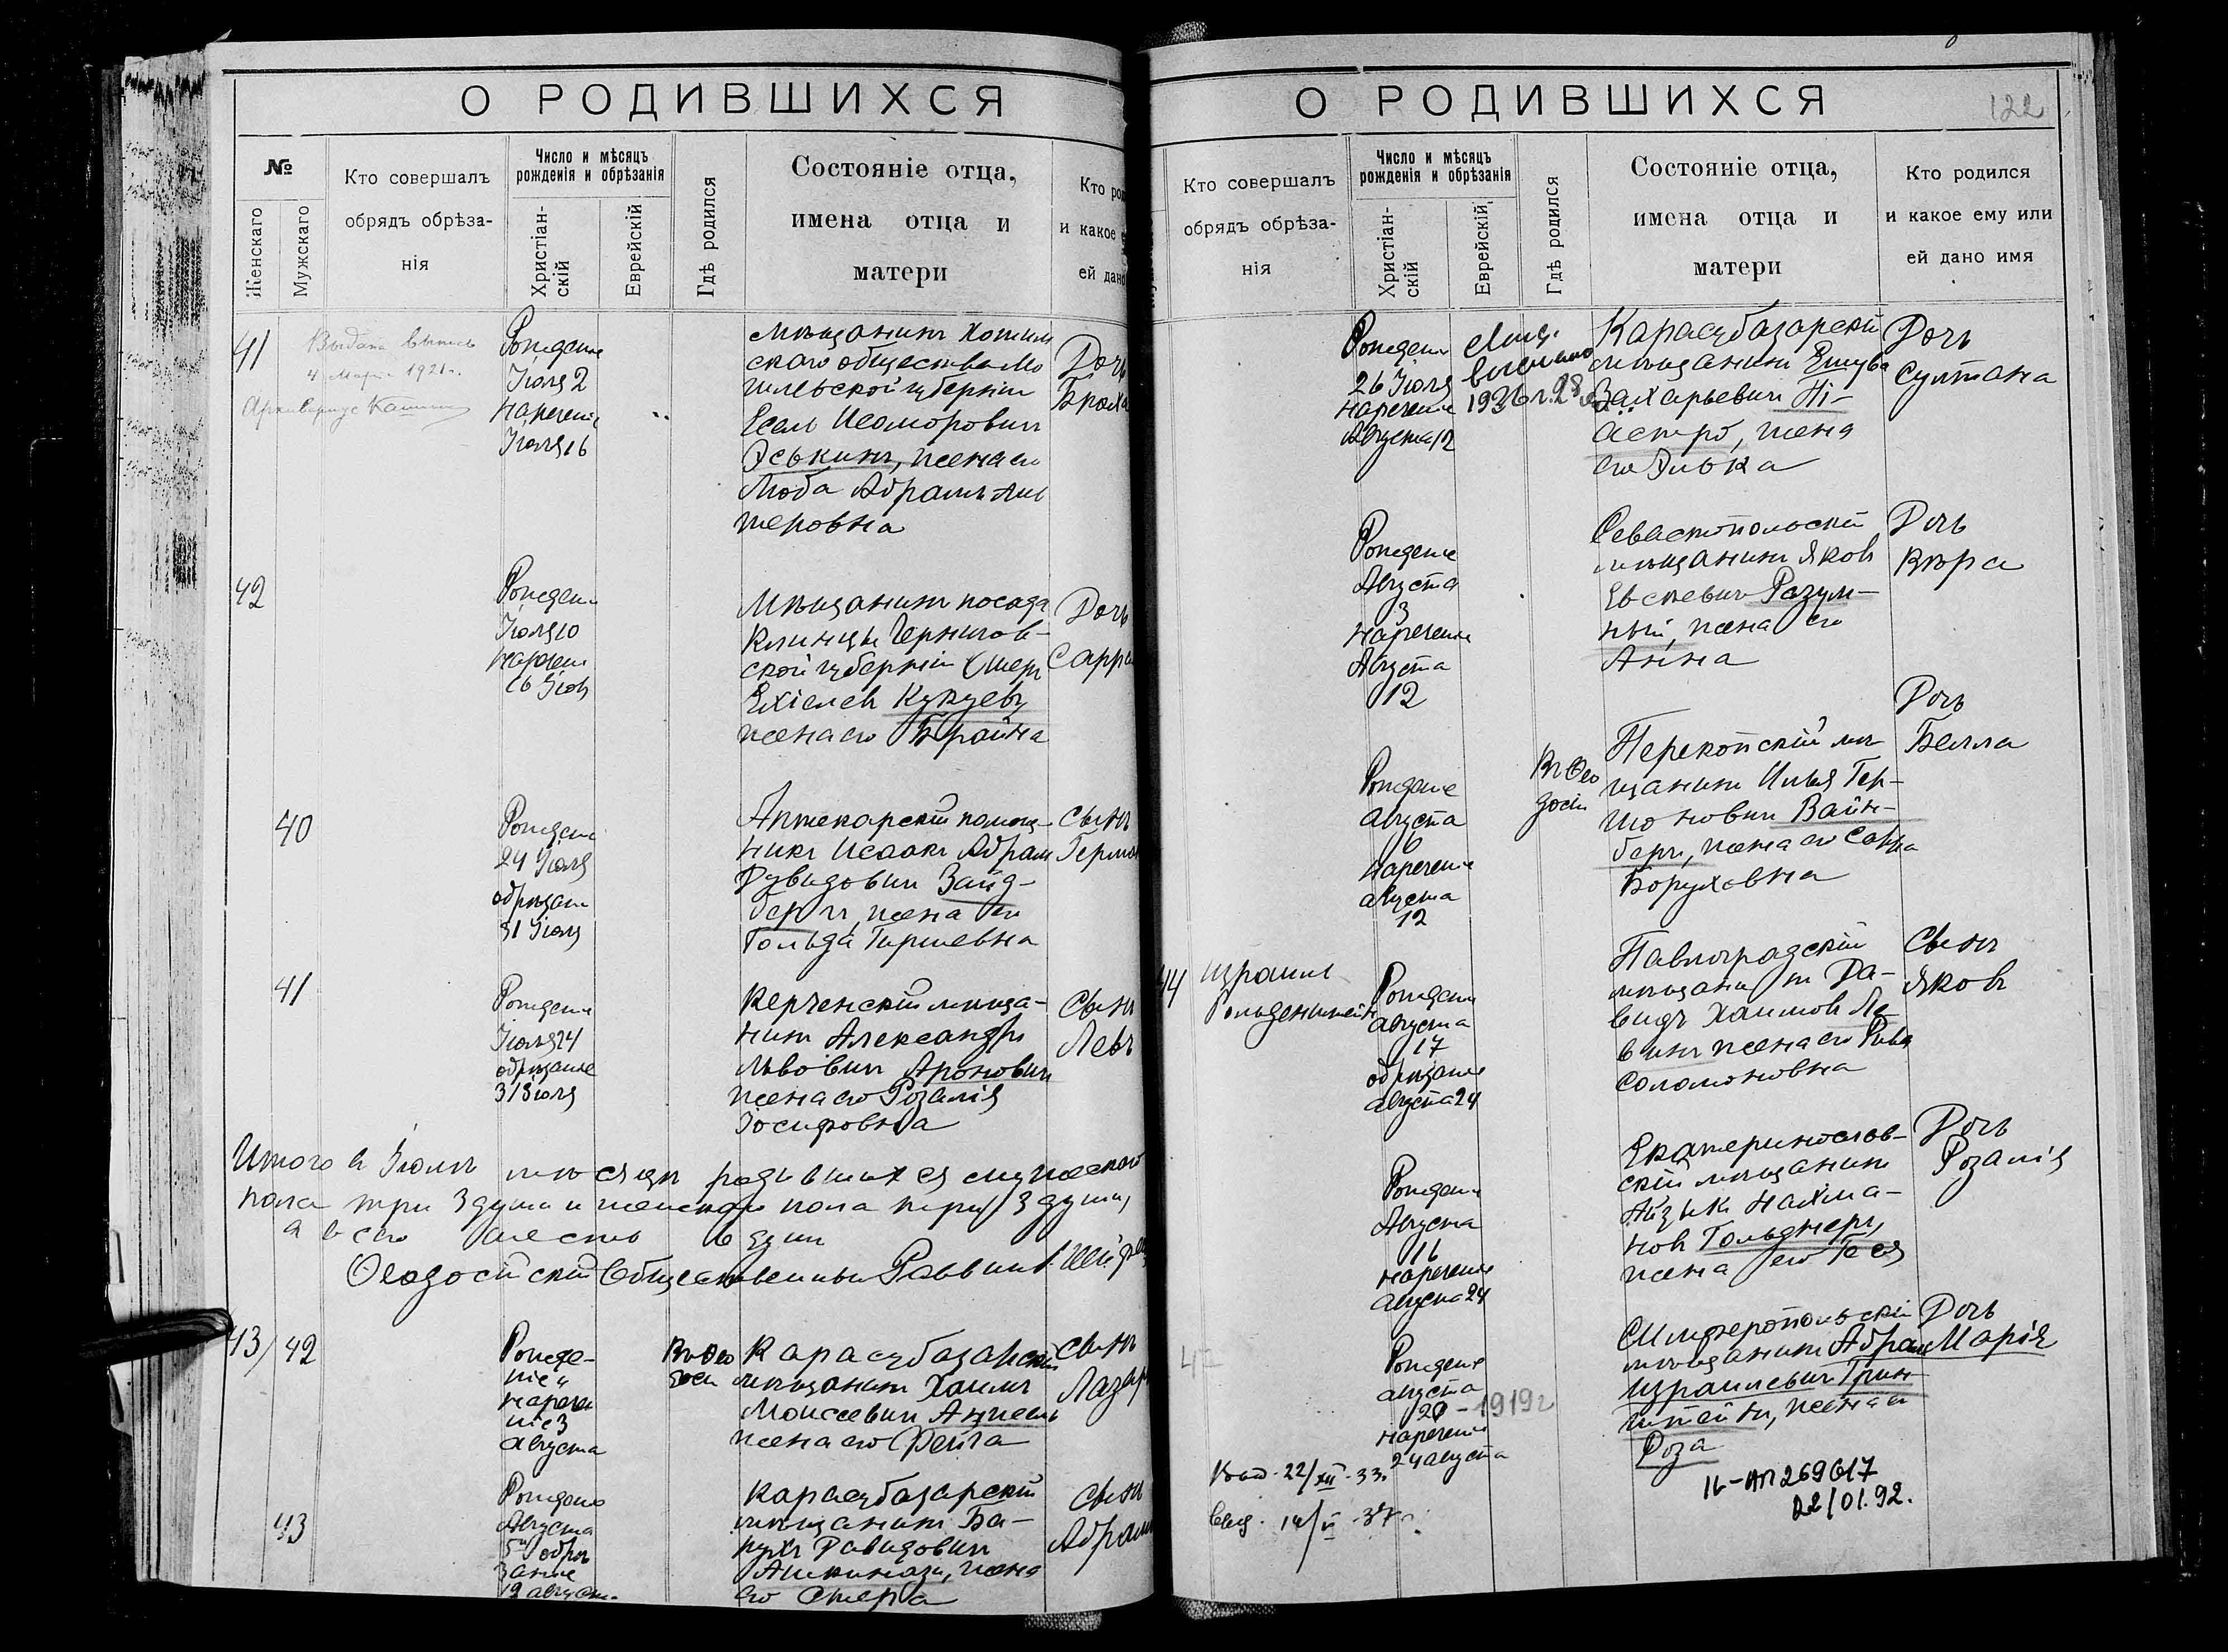 О РОДИВШИХСЯ
№
Женскаго
Мужскаго
Кто совершалъ
обрядъ обрѣза-
нія
Число и мѣсяцъ
рожденія и обрѣзанія
Христіан-
скій
Еврейскій
Гдѣ родился
Состояніе отца,
имена отца и
матери
Кто род
и какое е
ей дано
41
4 Марта 1921 г.
Рожденіе
Іюля 2
нареченіе
Іюля 16
мѣщанинъ Хотин
скаго общества
губерніи
Оськинъ, жена его
Люба Абрамъ
Дочь
Бруха
42
Рожденіе
Іюля 10
16 Іюля
Мѣщанинъ посада
Клинцы Чернигов-
ской губерніи Шмеръ
Ехіелев
жена его Брайна
Дочь
Сарра
40
Рожденіе
24 Іюля
обрѣзаніе
31 Іюля
Аптекарскій помощ-
никъ Исаакъ Абрам
Давидович Зайд-
бергъ, жена его
Гольда Гиршевна
Сынъ
41
Рожденіе
Іюля 24
обрѣзаніе
31 Іюля
Керченскій мѣща-
нинъ Александръ
Львович Аронович
жена его Розалія
Іосифовна
Сынъ
Левъ
Итого въ Іюлѣ мѣсяцѣ родившихся мужескаго
пола три 3 души и женскаго пола три 3 души,
а всего шесть 6 душ
Ѳеодосійскій Общественный Раввинъ
43/42
Рожде-
ніе
нарече
ніе 3
Августа
Въ Ѳео
досіи
Карасубазарскій
мѣщанинъ Хаимъ
Моисеевич
жена его Фейга
Сынъ
Лазарь
43
Рожденіе
Августа
5 обрѣ
заніе
12 августа
Карасубазарскій
мѣщанинъ Ба-
рухъ Давидович
Ашкинази, жена
его Стерна
Сынъ
Абрам
О РОДИВШИХСЯ
122
Кто совершалъ
обрядъ обрѣза-
нія
Число и мѣсяцъ
рожденія и обрѣзанія
Христіан-
скій
Еврейскій
Гдѣ родился
Состояніе отца,
имена отца и
матери
Кто родился
и какое ему или
ей дано имя
Рожденіе
26 Іюля
нареченіе
Августа 12
1936 г. 28
Карасубазарскій
мѣщанинъ Ешуа
Захарьевич Пі-
астро, жена
его Ривка
Дочь
Султана
Рожденіе
Августа
3
нареченіе
Августа
12
Севастопольскій
мѣщанинъ Яков
Евсеевич Разум-
ный, жена его
Анна
Дочь
Вѣра
Рожденіе
Августа
6
нареченіе
Августа
12
Въ Ѳео
досіи
Перекопскій мѣ
щанинъ Илья Гер-
шонович Вайн-
бергъ, жена его Сарра
Боруховна
Дочь
Белла
44
Израиль
Гольденштейн
Рожденіе
Августа
17
обрѣзаніе
Августа 24
Павлоградскій
мѣщанинъ Да-
видъ Хаимов Ле
винъ жена его Рива
Соломоновна
Сынъ
Яковъ
Рожденіе
Августа
16
нареченіе
Августа 24
Екатеринослав-
скій мѣщанинъ
Айзыкъ Нахма-
нов
жена его
Дочь
Розалія
Рожденіе
Августа
20 - 1919 г
нареченіе
24 августа
Симферопольскій
мѣщанинъ Абрам
Израилевич Грин-
штейн, жена его
Роза
Дочь
Марія
22/XII - 33.
22/01.92.